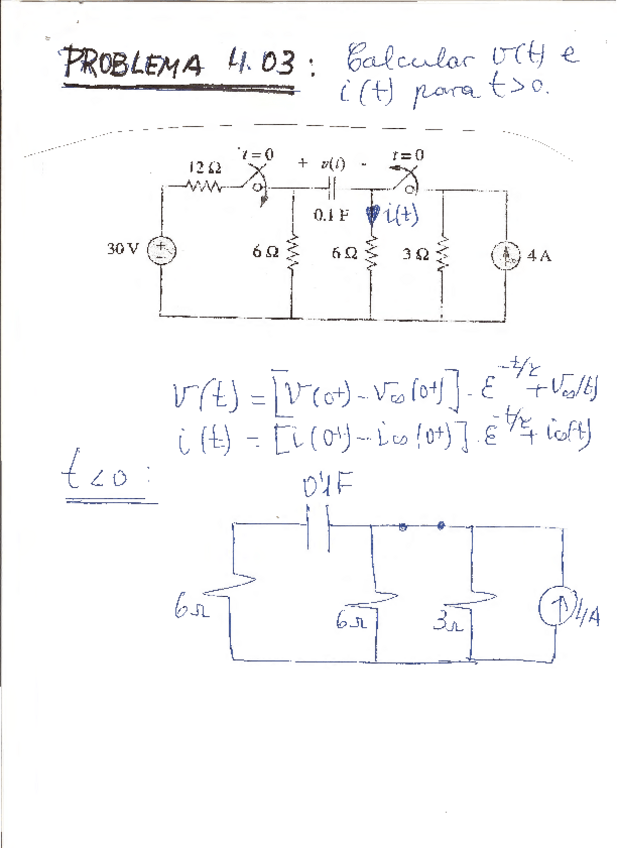 PROBLEMA 4.03: Calcular v(t) e
i(t) para t>0.
12 Ω t=0 + v(t) - t=0
0.1 F i(t)
30 V + - 6 Ω 6 Ω 3 Ω 4 A
v(t) = [v(0+) - v∞(0+)] · ε^-t/τ + v∞(t)
i(t) = [i(0+) - i∞(0+)] · ε^-t/τ + i∞(t)
t<0:
0'1F
6Ω 6Ω 3Ω 4A